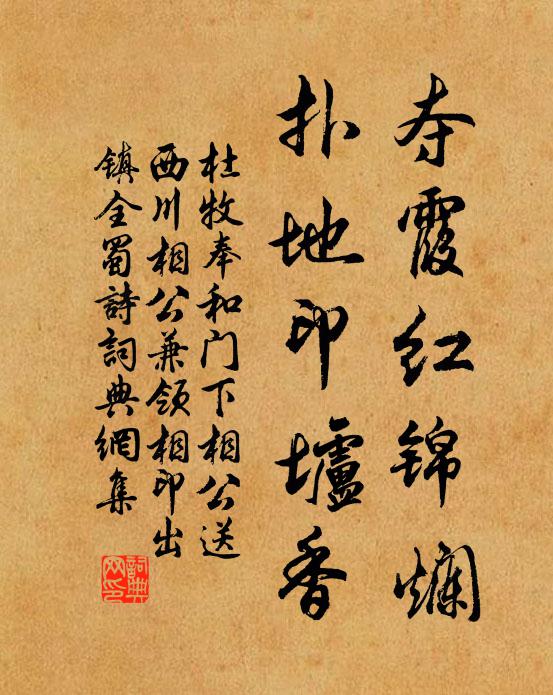 夺霞红锦烂
扑地印壚香
杜牧奉和门下相公送
西川相公兼领相印出
镇全蜀詩詞典網集
詞典
网印